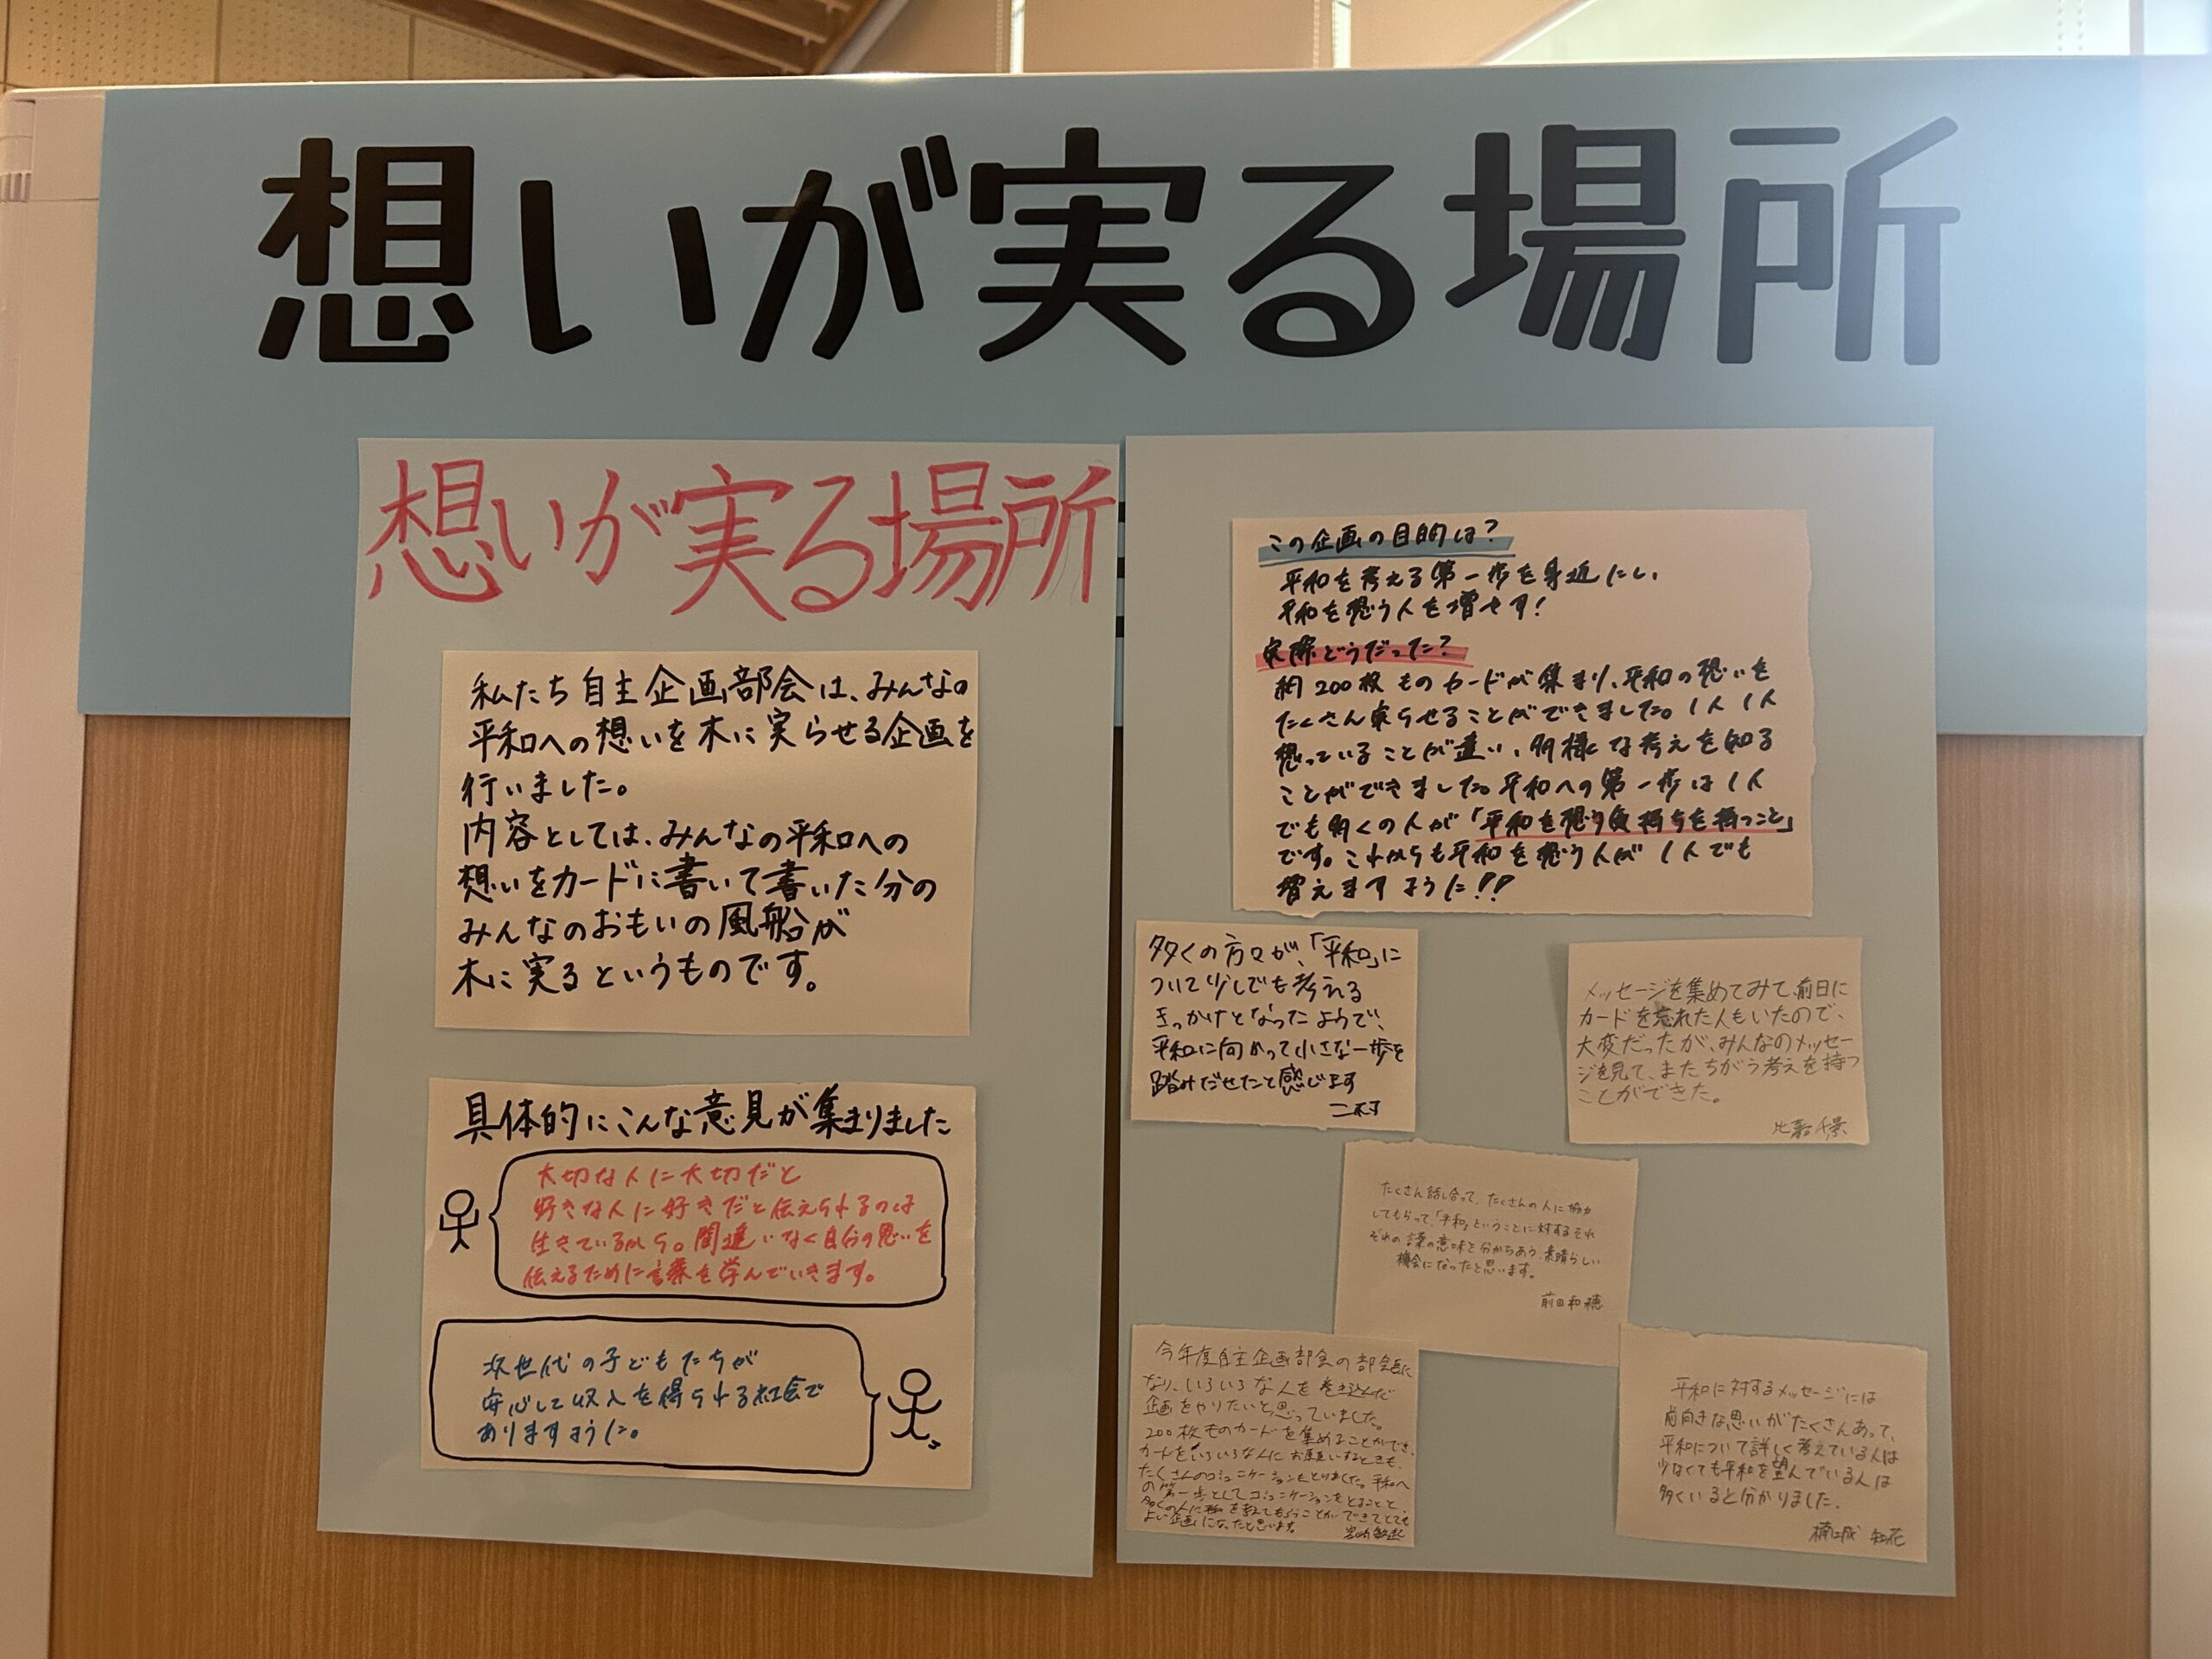 想いが実る場所
想いが実る場所
私たち自主企画部会は、みんなの
平和への想いを木に実らせる企画を
行いました。
内容としては、みんなの平和への
想いをカードに書いて書いた分の
みんなのおもいの風船が
木に実るというものです。
具体的にこんな意見が集まりました
大切な人に大切だと
好きな人に好きだと伝えられるのは
生きているから。間違いなく自分の思いを
伝えるために言葉を学んでいきます。
次世代の子どもたちが
安心して収入を得られる社会で
ありますように。
この企画の目的は?
平和を考える第一歩を身近にし、
平和を想う人を増やす!
実際どうだった?
約200枚ものカードが集まり、平和の想いを
たくさん実らせることができました。1人1人
想っていることが違い、多様な考えを知る
ことができました。平和への第一歩は1人
でも多くの人が「平和を想う気持ちを持つこと」
です。これからも平和を想う人が1人でも
増えますように!!
多くの方々が、「平和」に
ついて少しでも考える
きっかけとなったようで、
平和に向かって小さな一歩を
踏みだせたと感じます
メッセージを集めてみて、前日に
カードを忘れた人もいたので、
大変だったが、みんなのメッセー
ジを見て、またちがう考えを持つ
ことができた。
比嘉千景
たくさん話し合って、たくさんの人に協力
してもらって、「平和」ということに対するそれ
ぞれの言葉の意味を分かちあう、素晴らしい
機会になったと思います。
前田和穂
今年度自主企画部会の部会長に
なり、いろいろな人を巻き込んだ
企画をやりたいと思っていました。
200枚ものカードを集めることができ、
カードをいろいろな人にお願いするときも、
たくさんのコミュニケーションをとりました。平和へ
の第一歩としてコミュニケーションをとることと
多くの人に平和を考えてもらうことができてとても
よい企画になったと思います。
平和に対するメッセージには
前向きな思いがたくさんあって、
平和について詳しく考えている人は
少なくても平和を望んでいる人は
多くいると分かりました.